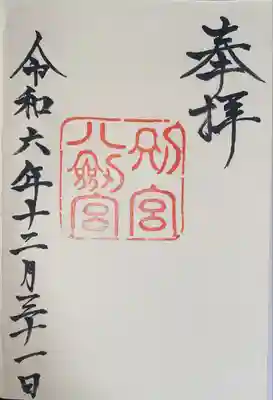 奉拝
別宮
八剣宮
令和六年十二月三十一日